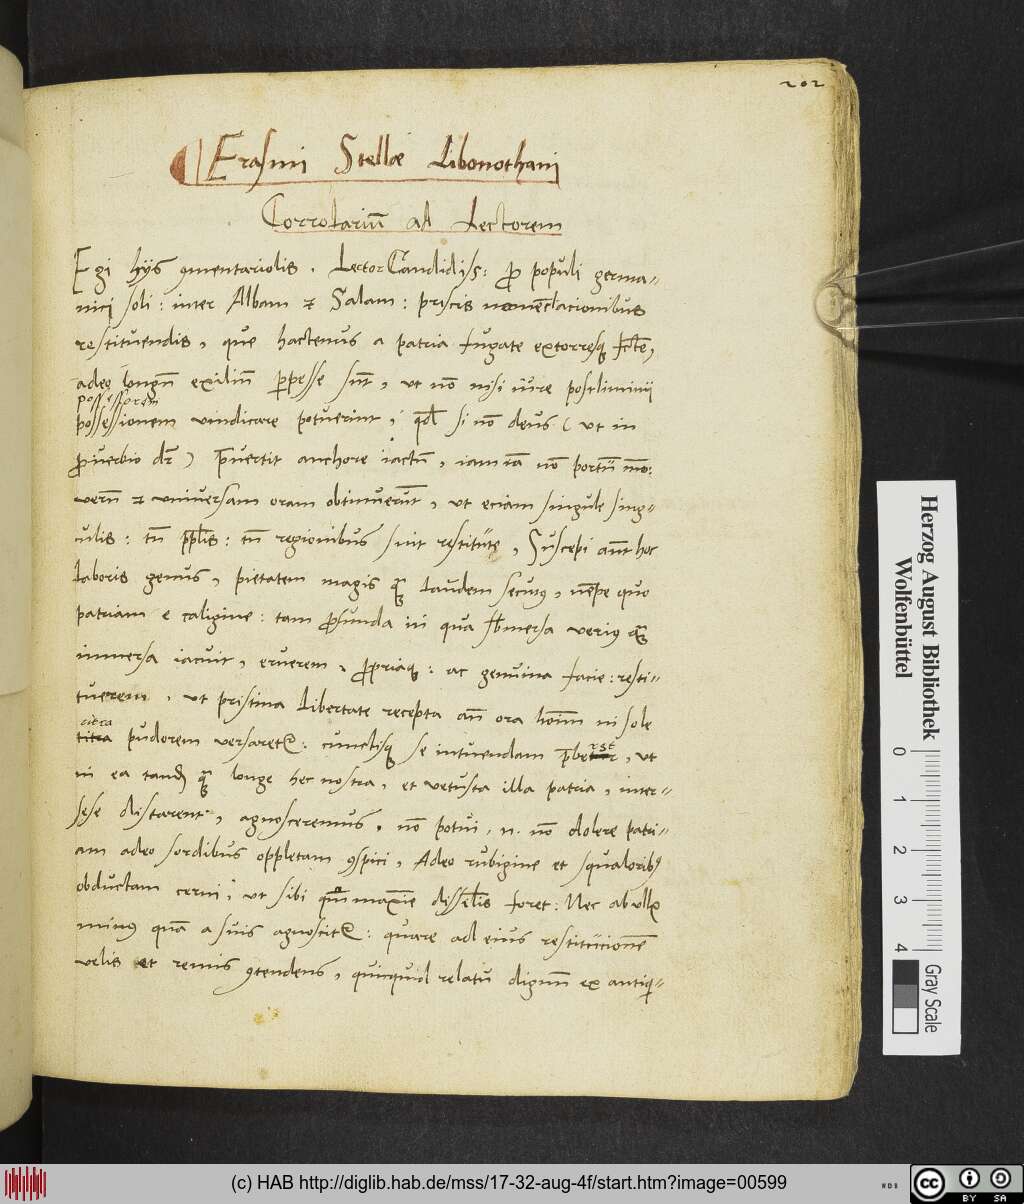 202
Erasmi Stellae Libonothani
Corrolariũ ad Lectorem
Egi hijs ꝯmentariolis . Lector Candidiss: ꝓ populi germa-
nici soli : inter Albam ⁊ Salam : priscis nomenclacionibus
restituendis, que hactenus a patria fugate extorresq̧ fctẽ,
adeo longũ exiliũ ꝑpesse sũt, ut nõ nisi iure postliminii
possessorem
possessionem vindicare potuerint, qđ si nõ deus ( ut in
ꝓverbio dr̃ ) p̃vertit anchore iactũ, iam iã nõ portũ mo:
verũ ⁊ universam oram obtinuerũt, ut eciam singule sing-
ulis : tũ pp̃lis : tũ regionibus sint restitute, Suscepi aũt hoc
laboris genus, pietatem magis q̃ laudem secutꝰ, nẽpe quo
patriam e caligine : tam ꝓfunda in qua sb̃mersa veriꝰ q̃
inmersa iacuit, eruerem, ꝓpriaq̧ : ac genuina facie : resti-
tuerem, ut pristina libertate recepta añ ora hoĩm in sole
citra
titra pudorem versaret̃ : cunctisq̧ se intuendam p̃beret, ut
in ea tandẽ q̃ longe hec nostra, et vetusta illa patria, inter-
sese distarent, agnosceremus, nõ potui .n. nõ dolere patri-
am adeo sordibus oppletam ꝯspici, Adeo rubigine et squaloribꝰ
obductam cerni, ut sibi qm̃ maxĩe dissĩlis foret : Nec ab ullis
minꝰ quã a suis agnoscit̃ : quare ad eius restitucionẽ
velis et remis ꝯtendens, quicquid relatũ dignũ ex antiq̃-
Herzog August Bibliothek
Wolfenbüttel
0 1 2 3 4
Gray Scale
(c) HAB http://diglib.hab.de/mss/17-32-aug-4f/start.htm?image=00599
WDB
cc BY SA